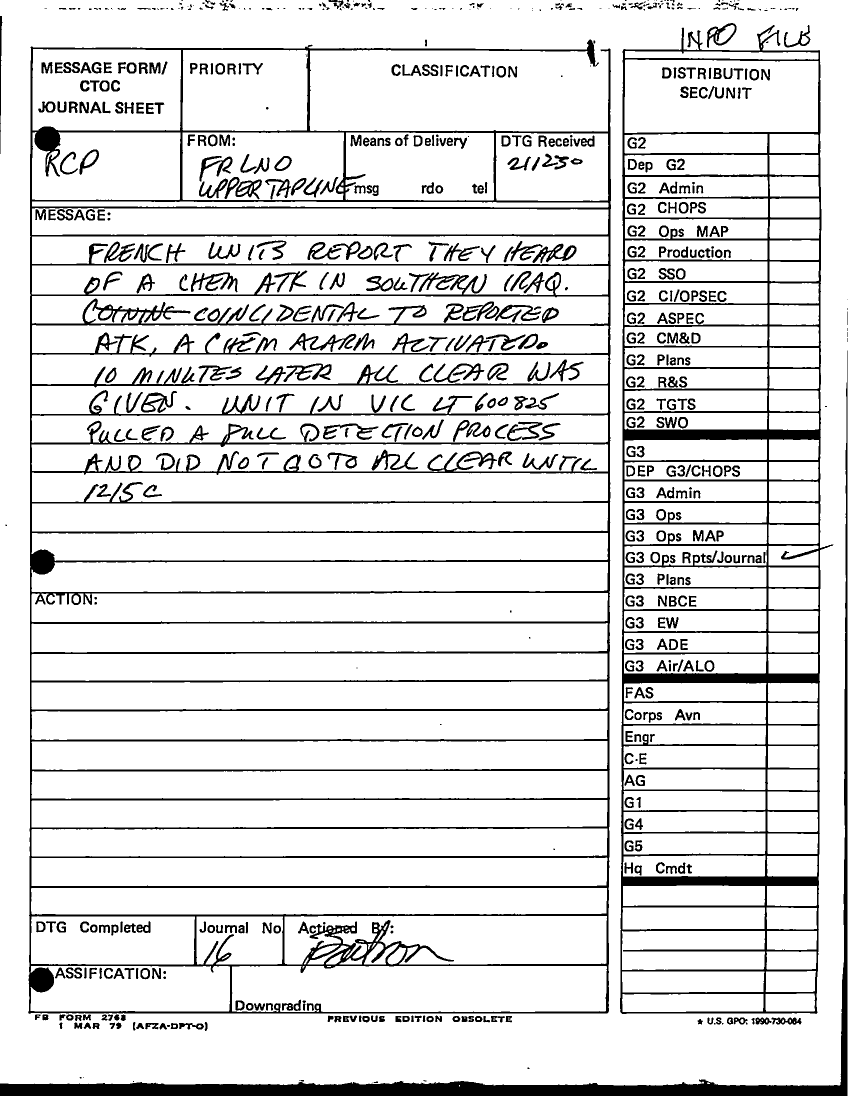 INFO FILE
MESSAGE FORM/
CTOC
JOURNAL SHEET
PRIORITY
CLASSIFICATION
RCP
FROM:
FR LNO
UPPER TAPLINE
Means of Delivery
msg rdo tel
DTG Received
211230
MESSAGE:
FRENCH UNITS REPORT THEY HEARD
OF A CHEM ATK IN SOUTHERN IRAQ.
COININE COINCIDENTAL TO REPORTED
ATK, A CHEM ALARM ACTIVATED.
10 MINUTES LATER ALL CLEAR WAS
GIVEN. UNIT IN VIC LT 600825
PULLED A FULL DETECTION PROCESS
AND DID NOT GO TO ALL CLEAR UNTIL
1215C
ACTION:
DTG Completed
Journal No.
16
Actioned By:
CLASSIFICATION:
Downgrading
FB FORM 2768
1 MAR 79 (AFZA-DPT-O)
PREVIOUS EDITION OBSOLETE
DISTRIBUTION
SEC/UNIT
G2
Dep G2
G2 Admin
G2 CHOPS
G2 Ops MAP
G2 Production
G2 SSO
G2 CI/OPSEC
G2 ASPEC
G2 CM&D
G2 Plans
G2 R&S
G2 TGTS
G2 SWO
G3
DEP G3/CHOPS
G3 Admin
G3 Ops
G3 Ops MAP
G3 Ops Rpts/Journal
G3 Plans
G3 NBCE
G3 EW
G3 ADE
G3 Air/ALO
FAS
Corps Avn
Engr
C-E
AG
G1
G4
G5
Hq Cmdt
* U.S. GPO: 1990-730-064